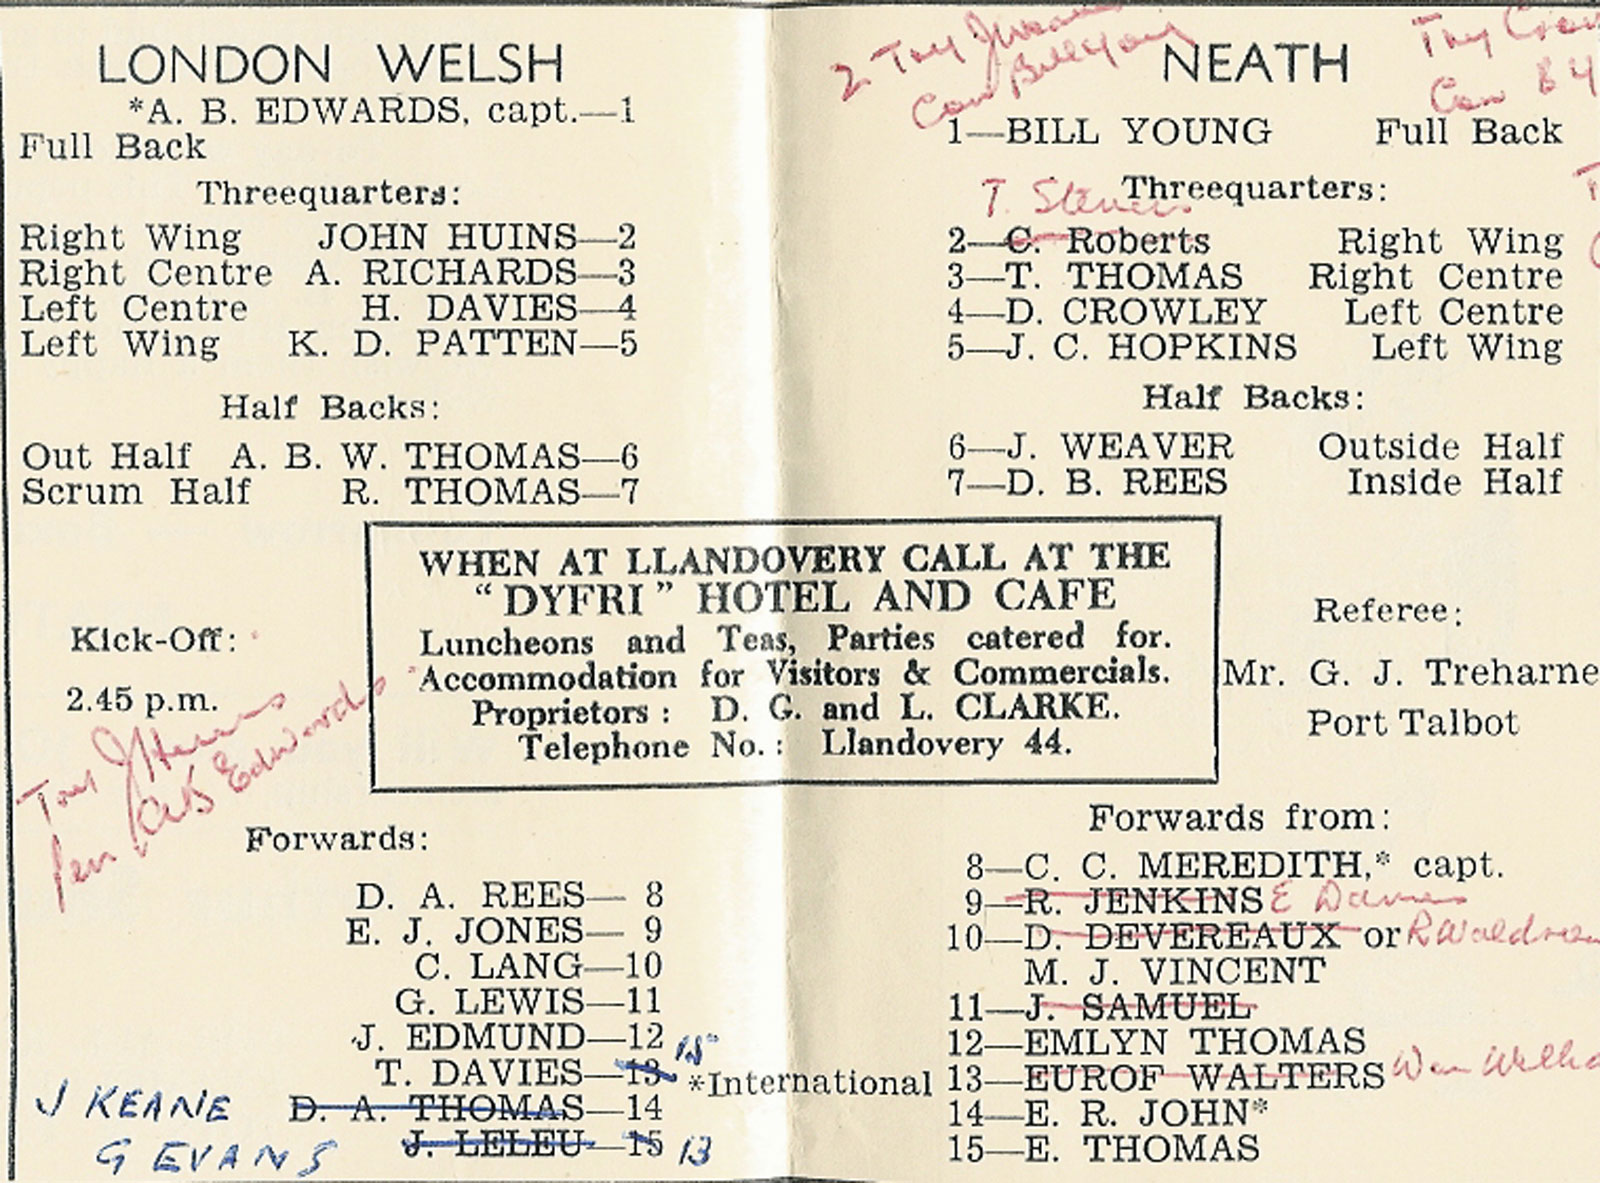 LONDON WELSH
*A. B. EDWARDS, capt.—1
Full Back
Threequarters:
Right Wing JOHN HUINS—2
Right Centre A. RICHARDS—3
Left Centre H. DAVIES—4
Left Wing K. D. PATTEN—5
Half Backs:
Out Half A. B. W. THOMAS—6
Scrum Half R. THOMAS—7
Kick-Off:
2.45 p.m.
Edwards
Forwards:
D. A. REES— 8
E. J. JONES— 9
C. LANG—10
G. LEWIS—11
J. EDMUND—12
T. DAVIES—13 15
J KEANE D. A. THOMAS—14
G EVANS J. LELEU—15 13
*International
WHEN AT LLANDOVERY CALL AT THE
"DYFRI" HOTEL AND CAFE
Luncheons and Teas, Parties catered for.
Accommodation for Visitors & Commercials.
Proprietors : D. G. and L. CLARKE.
Telephone No. : Llandovery 44.
NEATH
2 Try
Con Bill Young
Try
Con B Y
1—BILL YOUNG Full Back
Threequarters:
T. Stevens
2—C. Roberts Right Wing
3—T. THOMAS Right Centre
4—D. CROWLEY Left Centre
5—J. C. HOPKINS Left Wing
Half Backs:
6—J. WEAVER Outside Half
7—D. B. REES Inside Half
Referee:
Mr. G. J. Treharne
Port Talbot
Forwards from:
8—C. C. MEREDITH,* capt.
9—R. JENKINS E Davies
10—D. DEVEREAUX or R Waldron
M. J. VINCENT
11—J. SAMUEL
12—EMLYN THOMAS
13—EUROF WALTERS
14—E. R. JOHN*
15—E. THOMAS